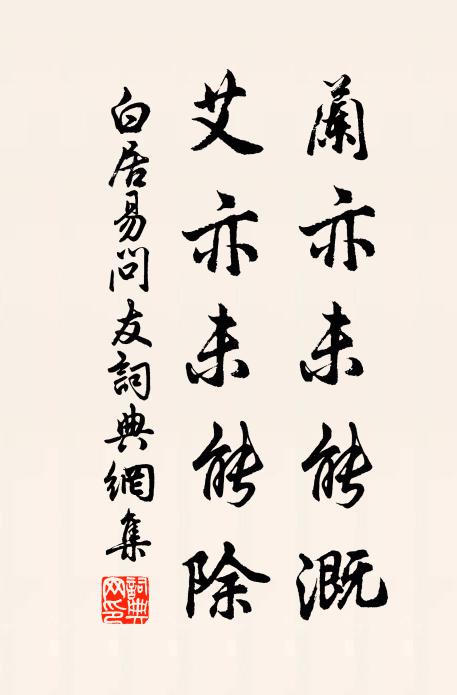 蘭亦未能溉
艾亦未能除
白居易問友詞典網集
詞典网印